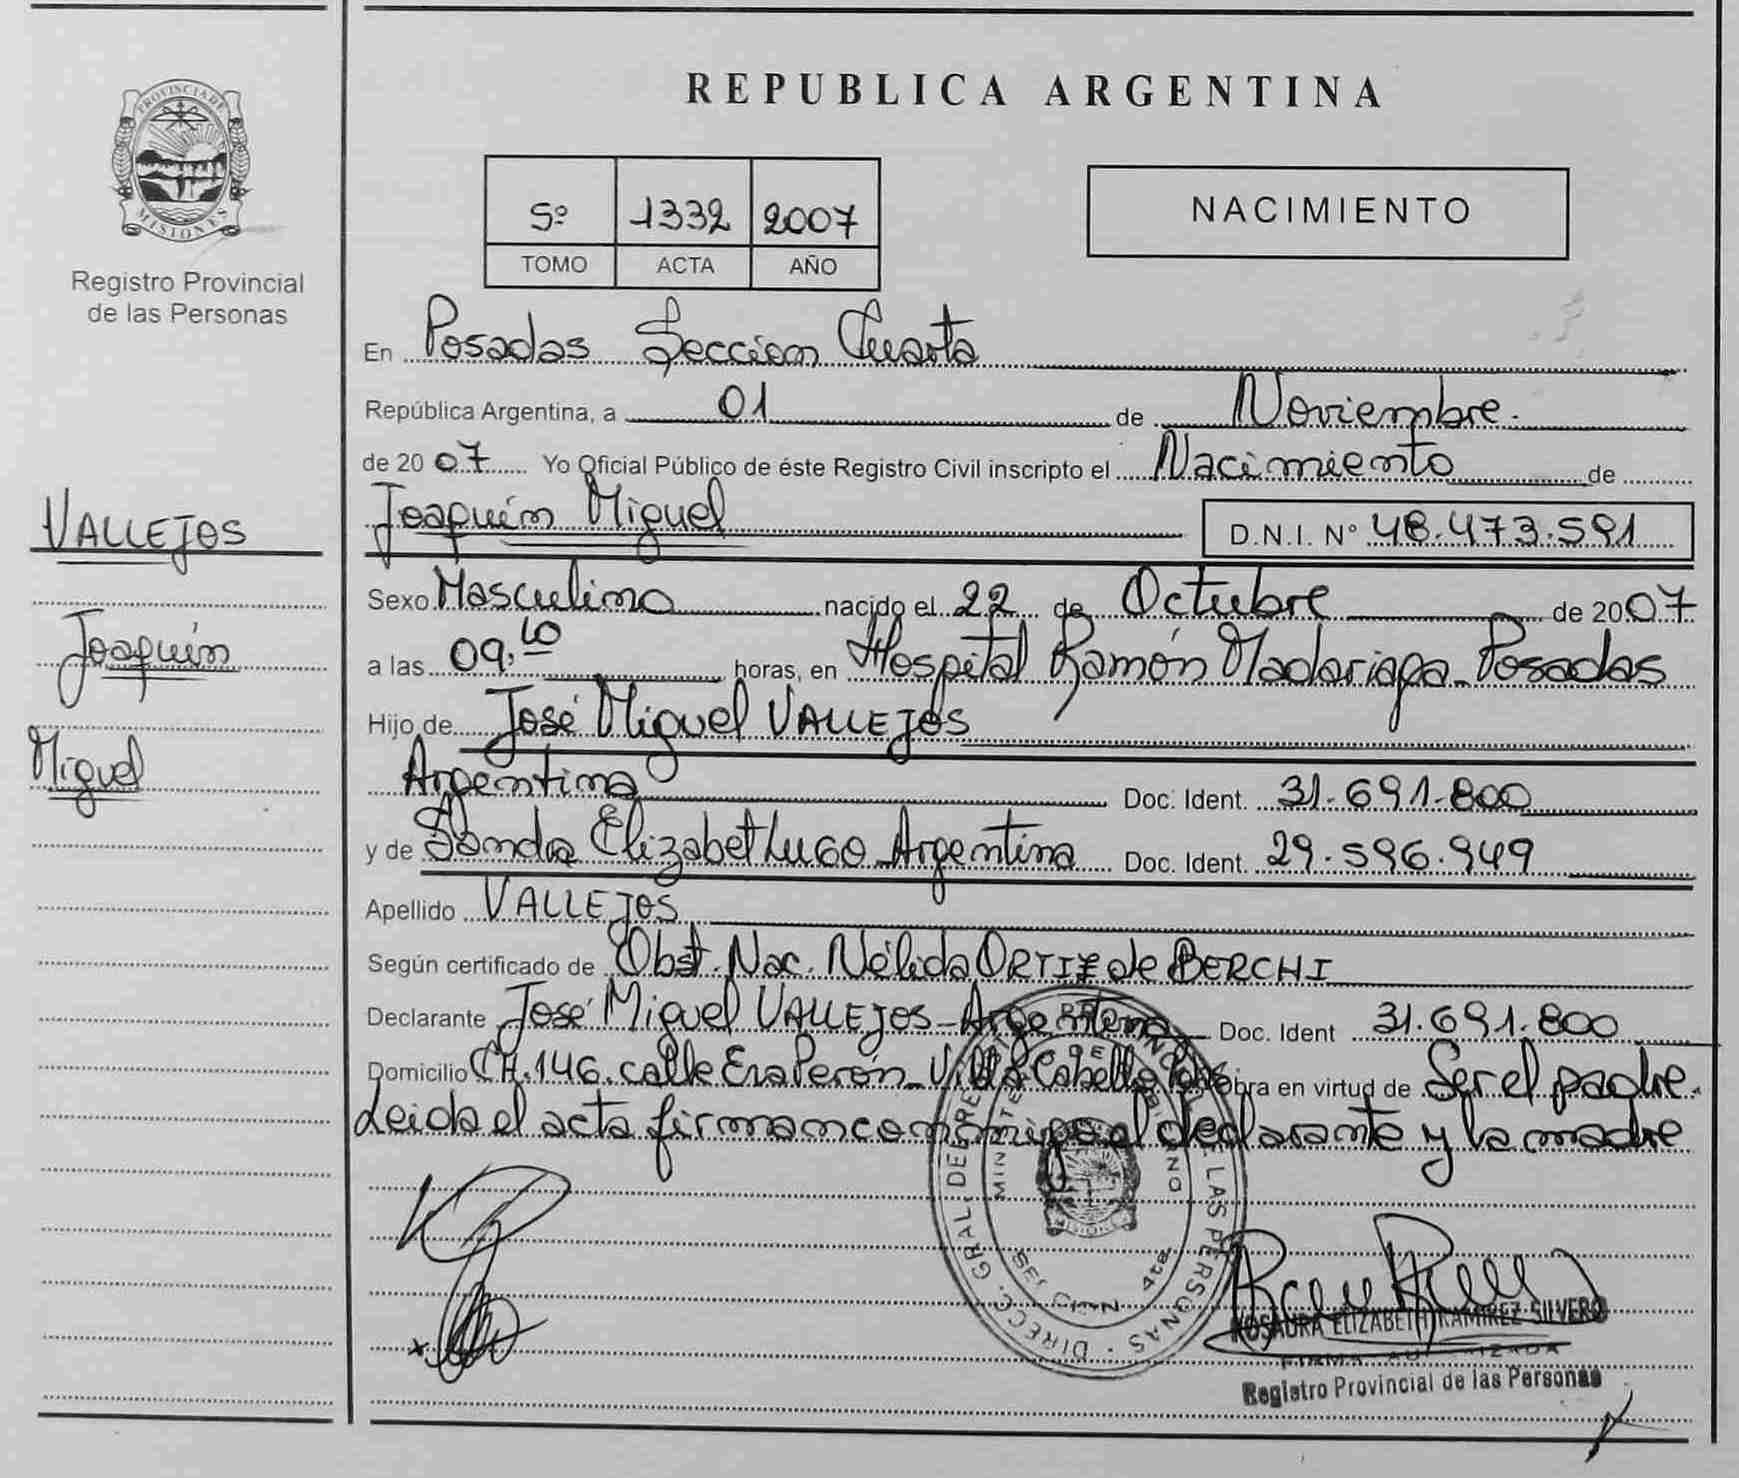 PROVINCIA DE
MISIONES
Registro Provincial
de las Personas
VALLEJOS
Joaquín
Miguel
REPUBLICA ARGENTINA
5º 1332 2007
TOMO ACTA AÑO
NACIMIENTO
En Posadas Seccion Cuarta
República Argentina, a 01 de Noviembre.
de 2007 Yo Oficial Público de éste Registro Civil inscripto el Nacimiento de
Joaquím Miguel D.N.I. Nº 48.473.591
Sexo Masculino nacido el 22 de Octubre de 2007
a las 09,10 horas, en Hospital Ramón Madariaga - Posadas
Hijo de José Miguel VALLEJOS
Argentina Doc. Ident. 31.691.800
y de Sandra Elizabet LUGO Argentina Doc. Ident. 29.596.949
Apellido VALLEJOS
Según certificado de Obst. Nac. Nélida ORTIZ de BERCHI
Declarante José Miguel VALLEJOS - Argentina Doc. Ident 31.691.800
Domicilio CH.146. calle Eva Perón - Villa Cabello obra en virtud de Ser el padre.
Leida el acta firman conmigo el declarante y la madre
DIRECC. GRAL. DE LAS PERSONAS
SECCION 4ta
ROSAURA ELIZABETH RAMIREZ SILVERO
FIRMA AUTORIZADA
Registro Provincial de las Personas